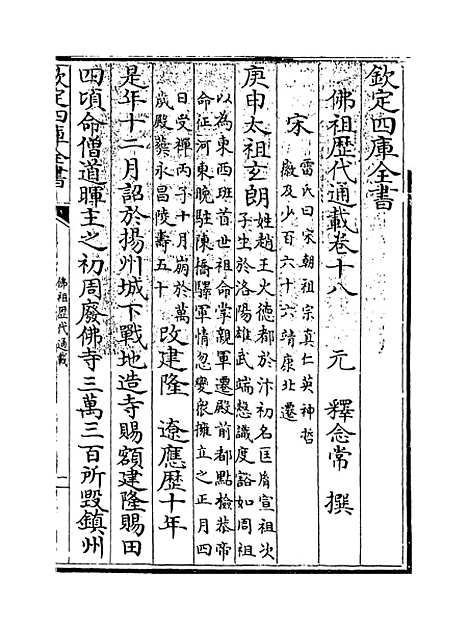 欽定四庫全書
佛祖歷代通載卷十八
元　釋念常　撰
宋
雷氏曰宋朝祖宗真仁英神哲
徽及少百六十六靖康北遷
庚申太祖玄朗
姓趙王火德都於汴初名匡胤宣祖次
子生於洛陽雄武端慤識度豁如周祖
以為東西班首世祖命掌親軍遷殿前都點檢恭帝
命征河東晚駐陳橋驛軍情忽變衆擁立之正月四
日受禪丙子十月崩於萬
歲殿葬永昌陵壽五十
改建隆　遼應歷十年
是年十二月詔於揚州城下戰地造寺賜額建隆賜田
四頃命僧道暉主之初周廢佛寺三萬三百所毀鎮州
欽定四庫全書
佛祖歷代通載
一